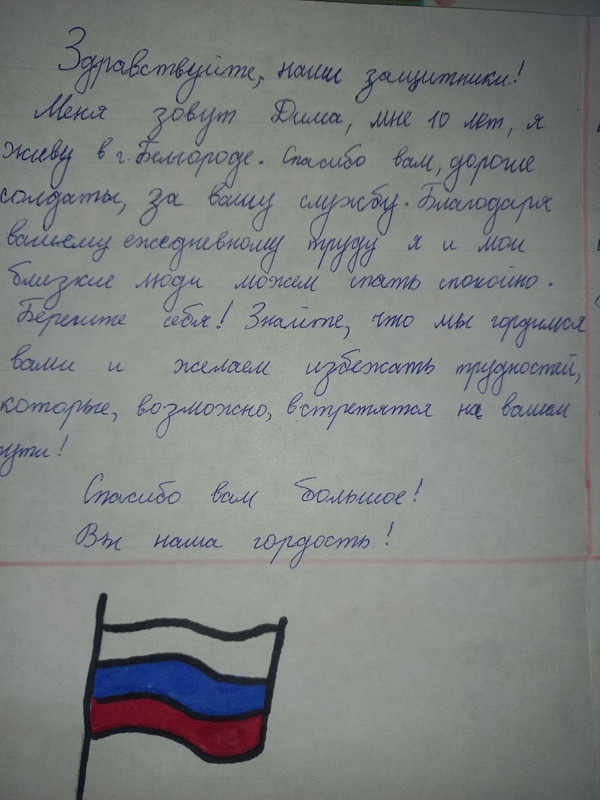 Здравствуйте, наши защитники!
Меня зовут Дима, мне 10 лет, я
живу в г. Белгороде. Спасибо вам, дорогие
солдаты, за вашу службу. Благодаря
вашему ежедневному труду я и мои
близкие люди можем спать спокойно.
Берегите себя! Знайте, что мы гордимся
вами и желаем избежать трудностей,
которые, возможно, встретятся на вашем
пути!
Спасибо вам большое!
Вы наша гордость!